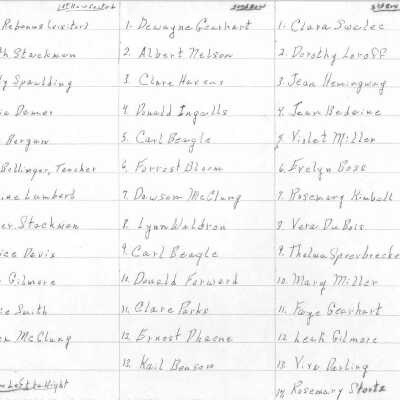 Rebanus (visitor)
Stackman
Spaulding
Demer
Bergan
Bollinger, Teacher
Lambert
Stackman
Davis
Gilmore
Smith
McClung
Left to Right
1. Dewayne Gearhart
2. Albert Nelson
3. Clare Havens
4. Donald Ingalls
5. Carl Beagle
6. Forrest Bloom
7. Dawson McClung
8. Lynn Waldron
9. Carl Beagle
10. Donald Forward
11. Clare Parks
12. Ernest Phaene
13. Kail Benson
1. Clara Swales
2. Dorothy Loroff
3. Jean Hemingway
4. Jean Bedaine
5. Violet Miller
6. Evelyn Boss
7. Rosemary Kimball
8. Vera DuBois
9. Thelma Sprerbrecker
10. Mary Miller
11. Faye Gearhart
12 Leah Gilmore
13. Viva Derling
14. Rosemary Shotts